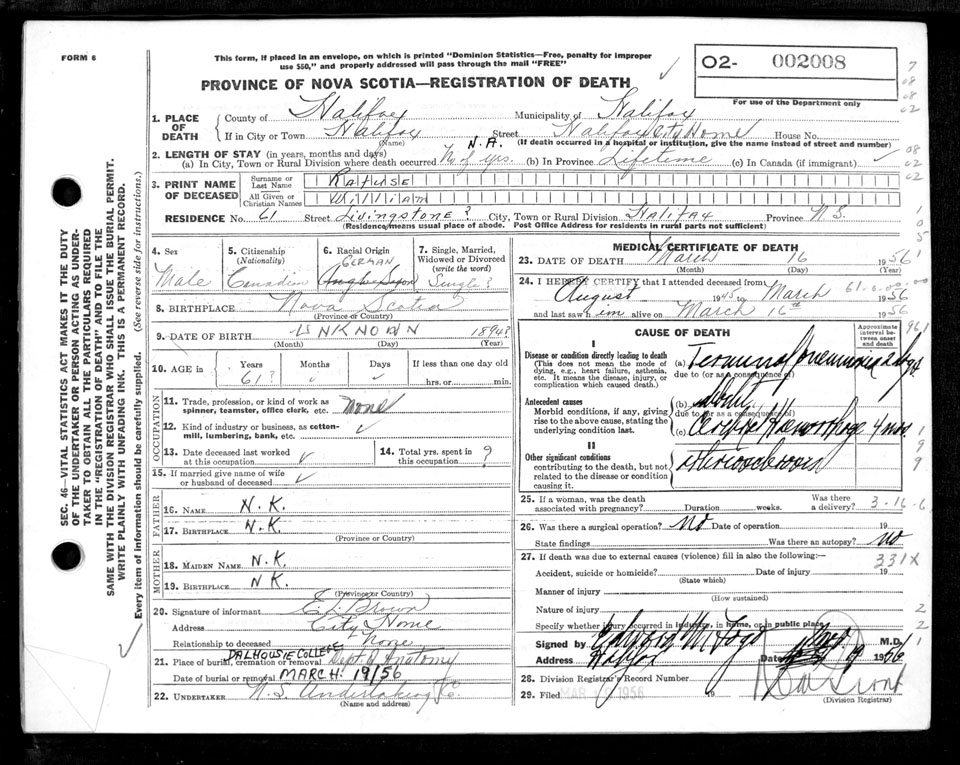 FORM 6
This form, if placed in an envelope, on which is printed "Dominion Statistics—Free, penalty for improper
use $50," and properly addressed will pass through the mail "FREE"
PROVINCE OF NOVA SCOTIA—REGISTRATION OF DEATH
O2- 002008
For use of the Department only
1. PLACE OF DEATH
County of Halifax Municipality of Halifax
If in City or Town Halifax Street Halifax City Home House No.
(Name) N.A. (If death occurred in a hospital or institution, give the name instead of street and number)
2. LENGTH OF STAY (in years, months and days)
(a) In City, Town or Rural Division where death occurred No. of yrs. (b) In Province Lifetime (c) In Canada (if immigrant)
3. PRINT NAME OF DECEASED
Surname or Last Name Rafuse
All Given or Christian Names William
RESIDENCE No. 61 Street Livingstone? City, Town or Rural Division Halifax Province N.S.
(Residence means usual place of abode. Post Office Address for residents in rural parts not sufficient)
4. Sex Male
5. Citizenship (Nationality) Canadian
6. Racial Origin GERMAN Anglo Saxon
7. Single, Married, Widowed or Divorced (write the word) Single?
8. BIRTHPLACE Nova Scotia
(Province or Country)
9. DATE OF BIRTH UNKNOWN 1894?
(Month) (Day) (Year)
10. AGE in Years 61? Months Days If less than one day old
hrs. or min.
OCCUPATION
11. Trade, profession, or kind of work as
spinner, teamster, office clerk, etc. None
12. Kind of industry or business, as cotton-
mill, lumbering, bank, etc.
13. Date deceased last worked
at this occupation
14. Total yrs. spent in
this occupation ?
15. If married give name of wife
or husband of deceased
FATHER
16. NAME N.K.
17. BIRTHPLACE N.K.
(Province or Country)
MOTHER
18. MAIDEN NAME N.K.
19. BIRTHPLACE N K.
(Province or Country)
20. Signature of informant E. L. Brown
Address City Home
Relationship to deceased None
DALHOUSIE COLLEGE
21. Place of burial, cremation or removal Dept. of Anatomy
Date of burial or removal MARCH 19/56
22. UNDERTAKER N.S. Undertaking Co.
(Name and address)
MEDICAL CERTIFICATE OF DEATH
23. DATE OF DEATH March 16 1956
(Month) (Day) (Year)
24. I HEREBY CERTIFY that I attended deceased from
August 1945 to March 1956
and last saw him alive on March 16th 1956
CAUSE OF DEATH
Approximate interval between onset and death
I
Disease or condition directly leading to death
(This does not mean the mode of
dying, e.g., heart failure, asthenia,
etc. It means the disease, injury, or
complication which caused death.)
(a) Terminal pneumonia 2 days
due to (or as a consequence of)
Antecedent causes
Morbid conditions, if any, giving
rise to the above cause, stating the
underlying condition last.
(b)
due to (or as a consequence of)
(c) Cerebral Haemorrhage 4 mos.
II
Other significant conditions
contributing to the death, but not
related to the disease or condition
causing it.
25. If a woman, was the death
associated with pregnancy? Duration weeks. Was there a delivery? 3-16-6
26. Was there a surgical operation? No Date of operation 19
State findings Was there an autopsy? No
27. If death was due to external causes (violence) fill in also the following:—
331X
Accident, suicide or homicide? Date of injury 19
(State which)
Manner of injury
(How sustained)
Nature of injury
Specify whether injury occurred in industry, in home, or in public place
Signed by M.D.
Address Halifax Date 19 1956
28. Division Registrar's Record Number
29. Filed MAR 19 1956 19
(Division Registrar)
SEC. 46—VITAL STATISTICS ACT MAKES IT THE DUTY
OF THE UNDERTAKER OR PERSON ACTING AS UNDER-
TAKER TO OBTAIN ALL THE PARTICULARS REQUIRED
IN THE "REGISTRATION OF DEATH" AND TO FILE THE
SAME WITH THE DIVISION REGISTRAR WHO SHALL ISSUE THE BURIAL PERMIT.
WRITE PLAINLY WITH UNFADING INK. THIS IS A PERMANENT RECORD.
Every item of information should be carefully supplied. (See reverse side for instructions.)